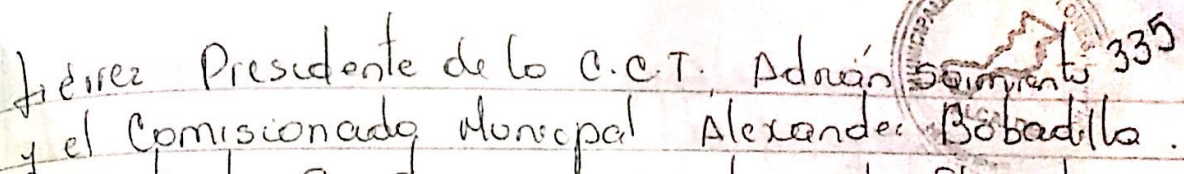 tiérrez Presidente de la C.C.T. Adrián Sarmiento 335
y el Comisionado Municipal Alexander Bobadilla.